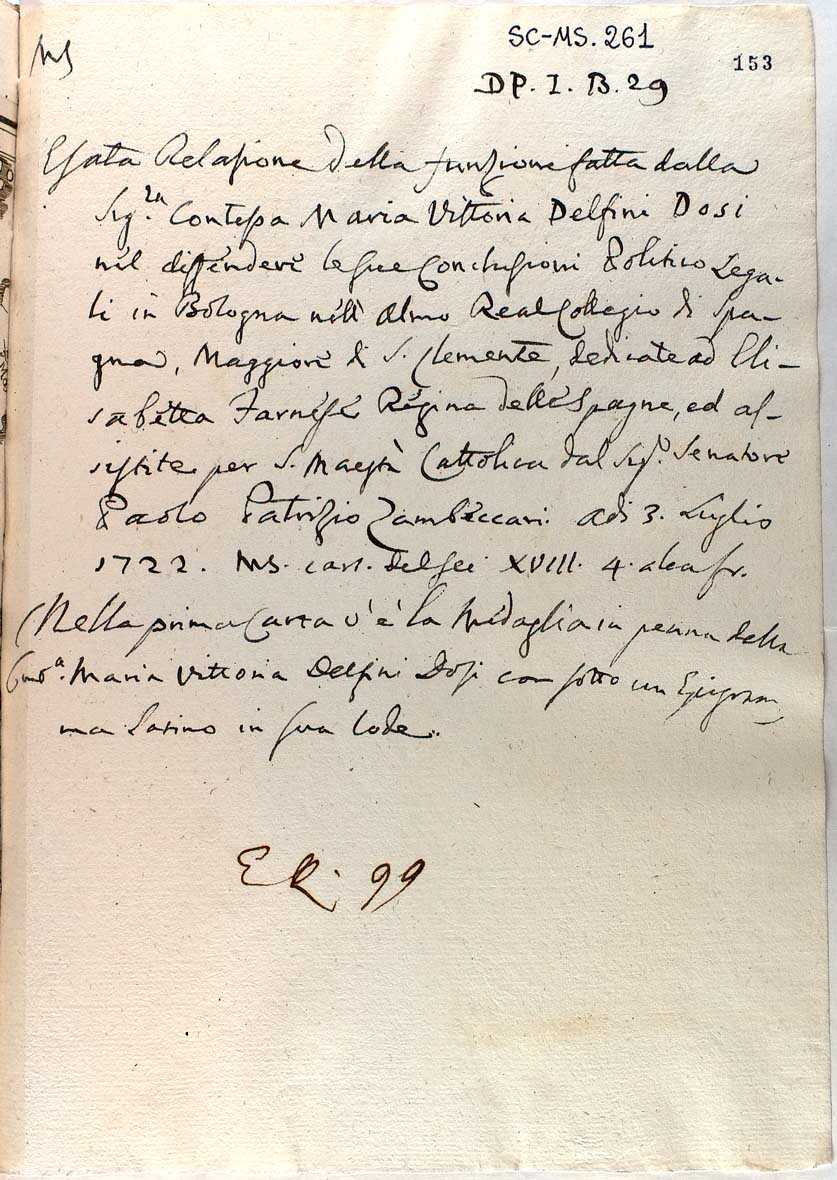 MS
SC-MS. 261
153
DP. I. B. 29
Esata Relasione della funzione fatta dalla
Sig.ra Contessa Maria Vittoria Delfini Dosi
nel diffendere le sue Conclusioni Politico Lega-
li in Bologna nell' Almo Real Collegio di Spa-
gna, Maggiore di S. Clemente, dedicate ad Eli-
sabetta Farnese Regina delle Spagne, ed as-
sistite per S. Maestà Cattolica dal Sig.r Senatore
Paolo Patrizio Zambeccari. adi 3. Luglio
1722. MS. cart. del sec XVIII. 4.
(Nella prima Carta v'è la Medaglia in penna della
Maria Vittoria Delfini Dosi con sotto un Epigram
ma Latino in sua lode.
ER. 99